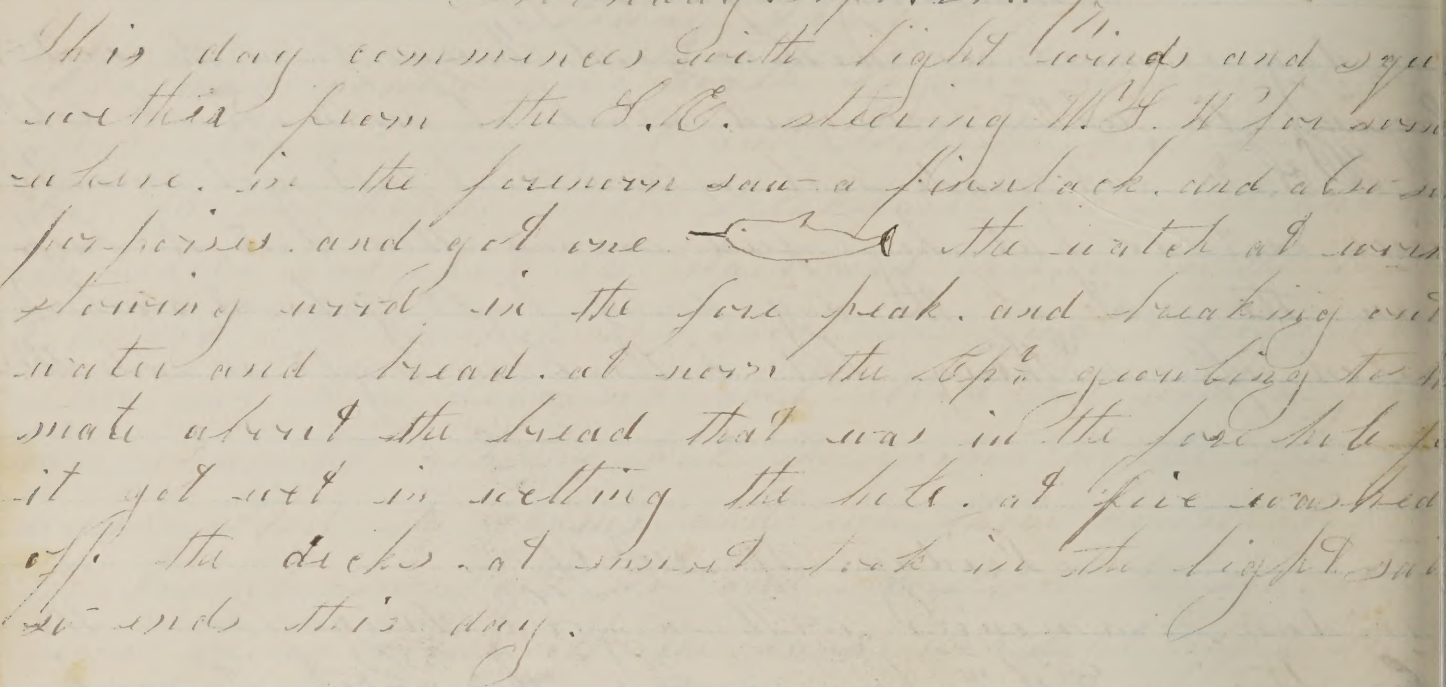 This day commences with light winds and squ
wether from the S.E. steering W.S.W for som
where. in the forenoon saw a finnback. and also
porpoises. and got one the watch at work
stowing wood in the fore peak. and breaking out
water and bread. at noon the Cpt. growling to
mate about the bread that was in the fore hole
it got wet in wetting the hole. at five washed
off the decks. at sunset took in the light sai
so ends this day.